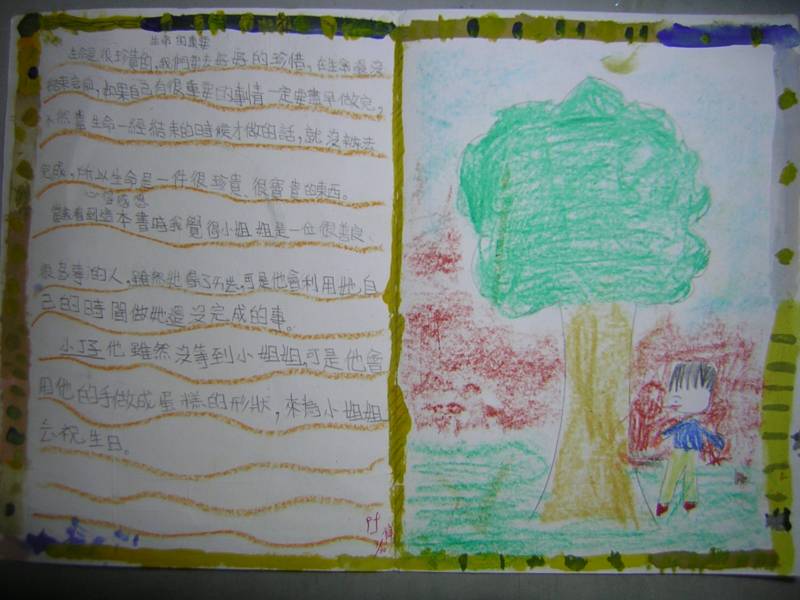 生命是很珍貴的,我們要去好好的珍惜,在生命還沒
結束之前,如果自己有很重要的事情一定要盡早做完,
不然當生命一經結束的時候才做的話,就沒辦法
完成,所以生命是一件很珍貴、很寶貴的東西。
心得感想
當我看到這本書時我覺得小姐姐是一位很善良、
很多事的人,雖然她得了,可是他會利用她自
己的時間做她還沒完成的事。
小孑他雖然沒等到小姐姐可是他會
用他的手做成蛋糕的形狀,來為小姐姐
去祝生日。